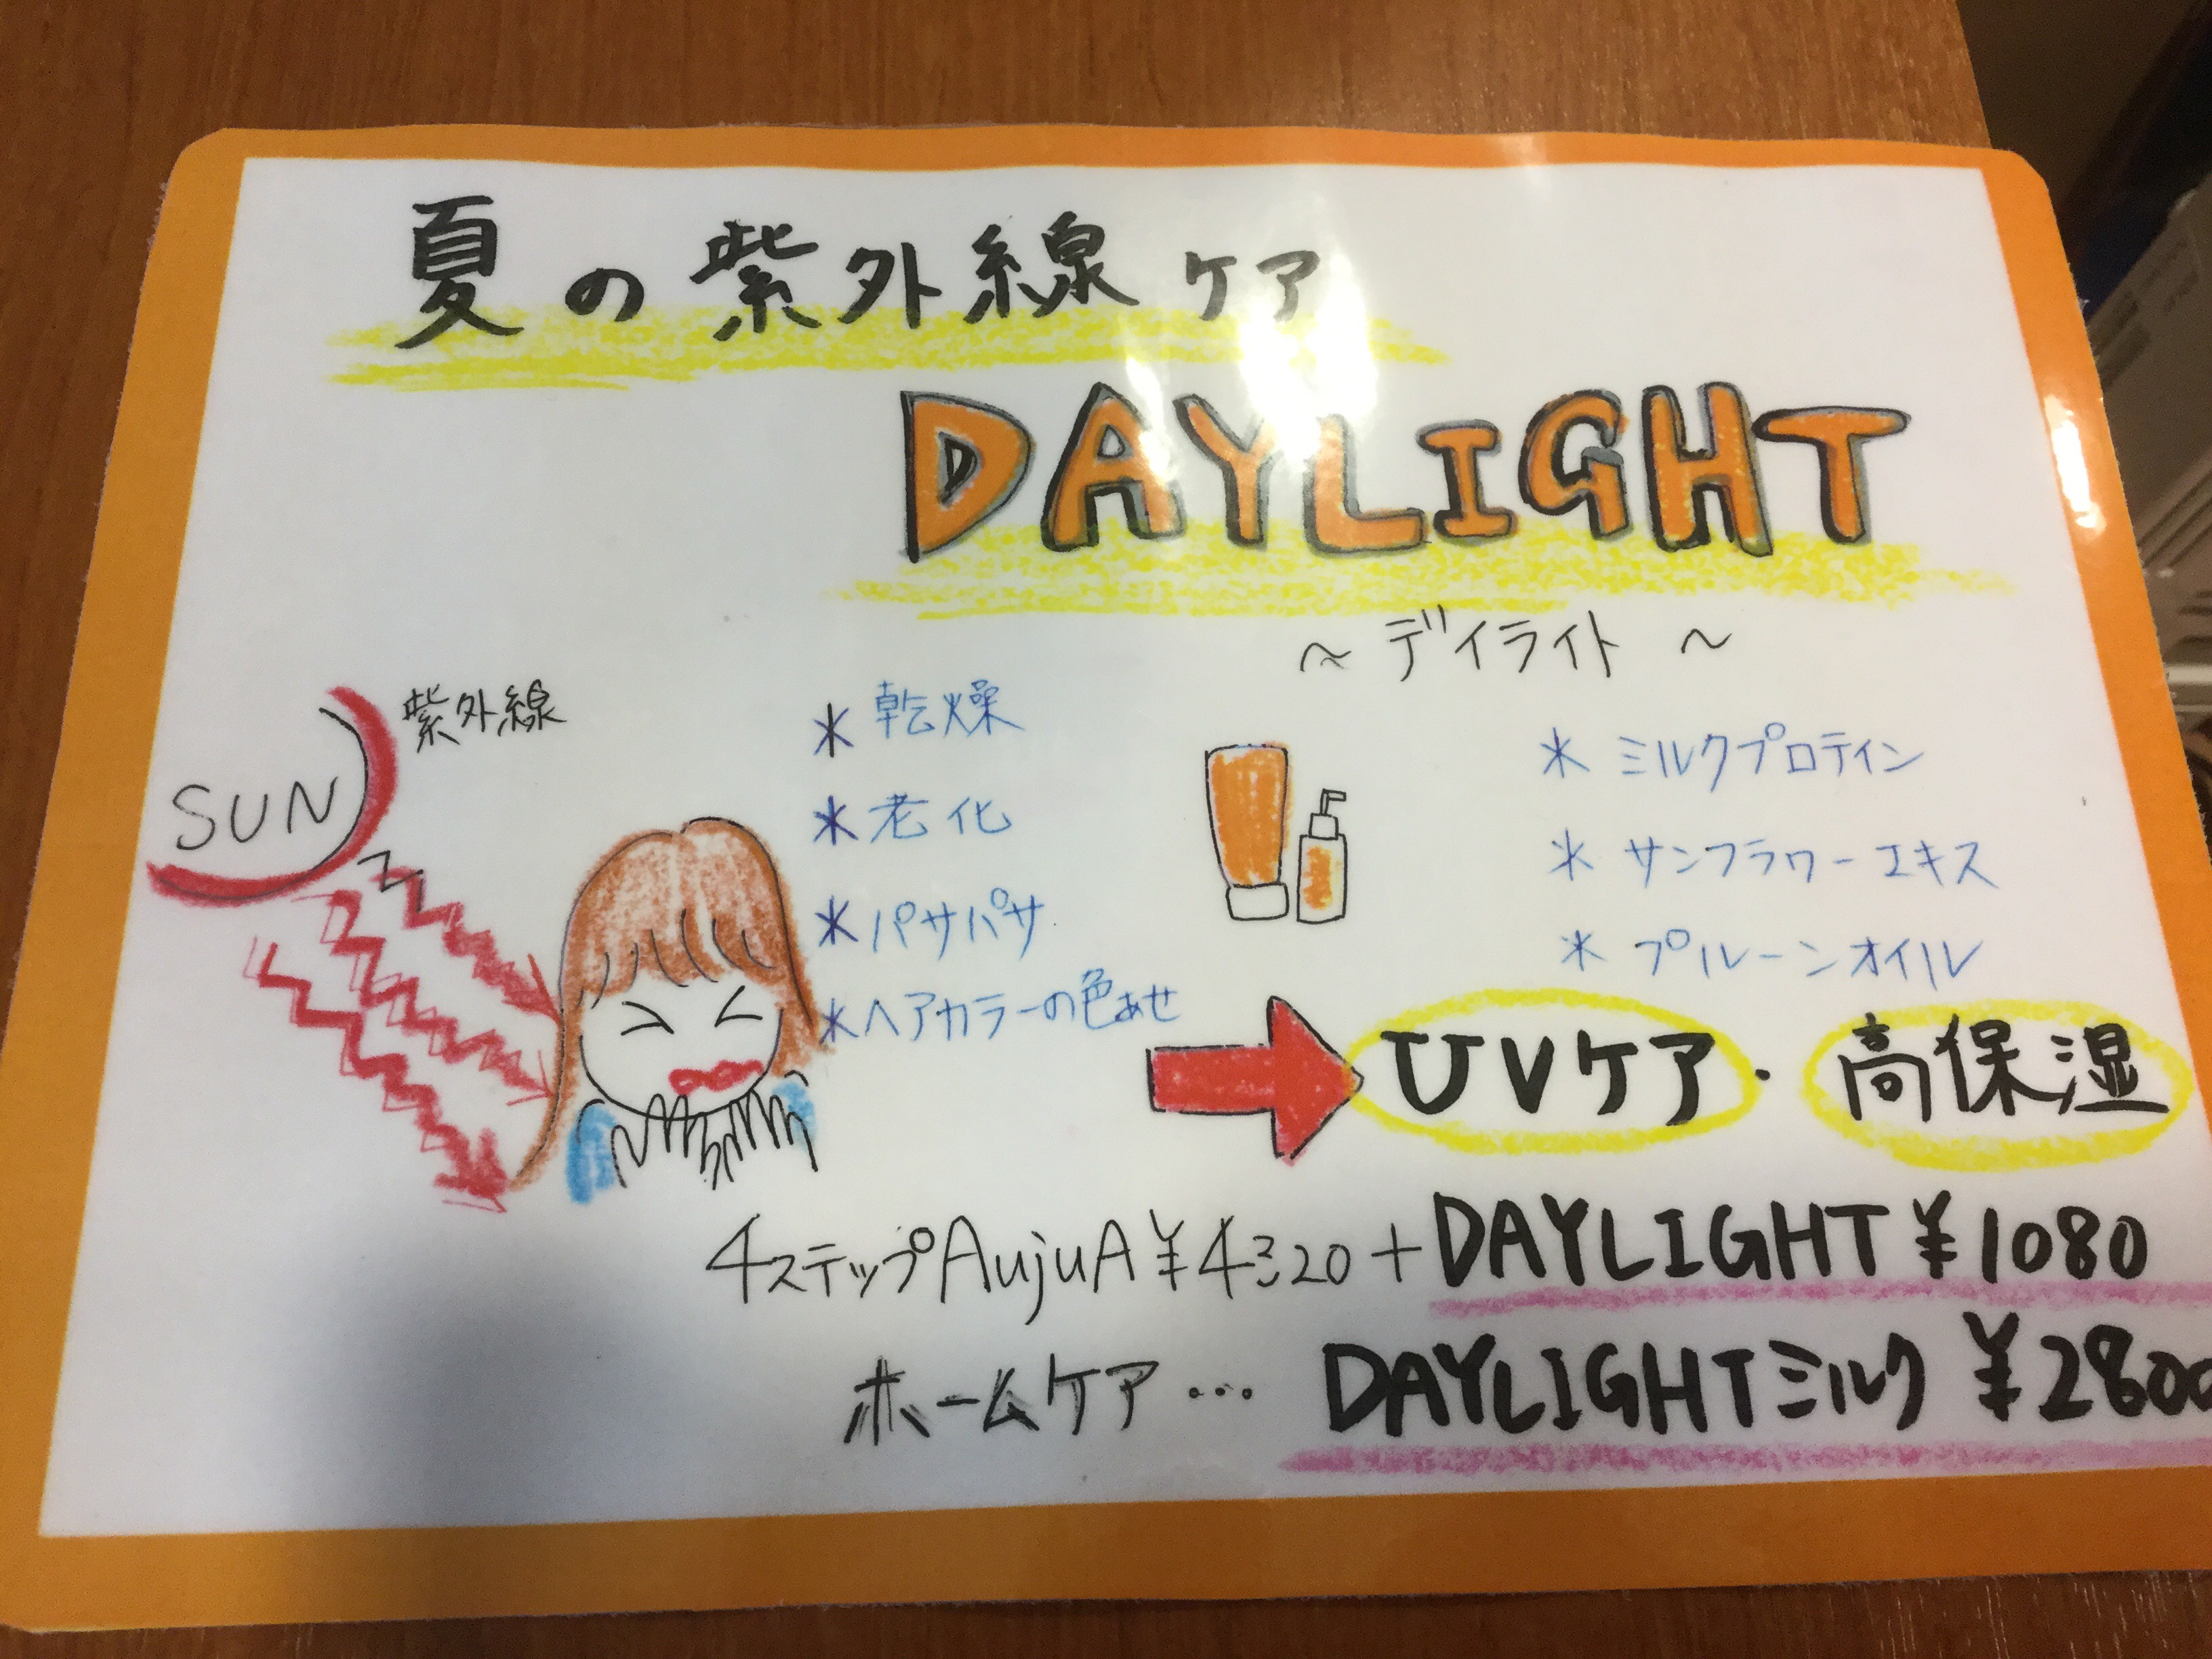 夏の紫外線ケア
DAYLIGHT
~デイライト~
紫外線
SUN
* 乾燥
* 老化
* パサパサ
* ヘアカラーの色あせ
* ミルクプロテイン
* サンフラワーエキス
* プルーンオイル
UVケア・高保湿
4ステップAujuA¥4320+DAYLIGHT¥1080
ホームケア… DAYLIGHTミルク ¥2800